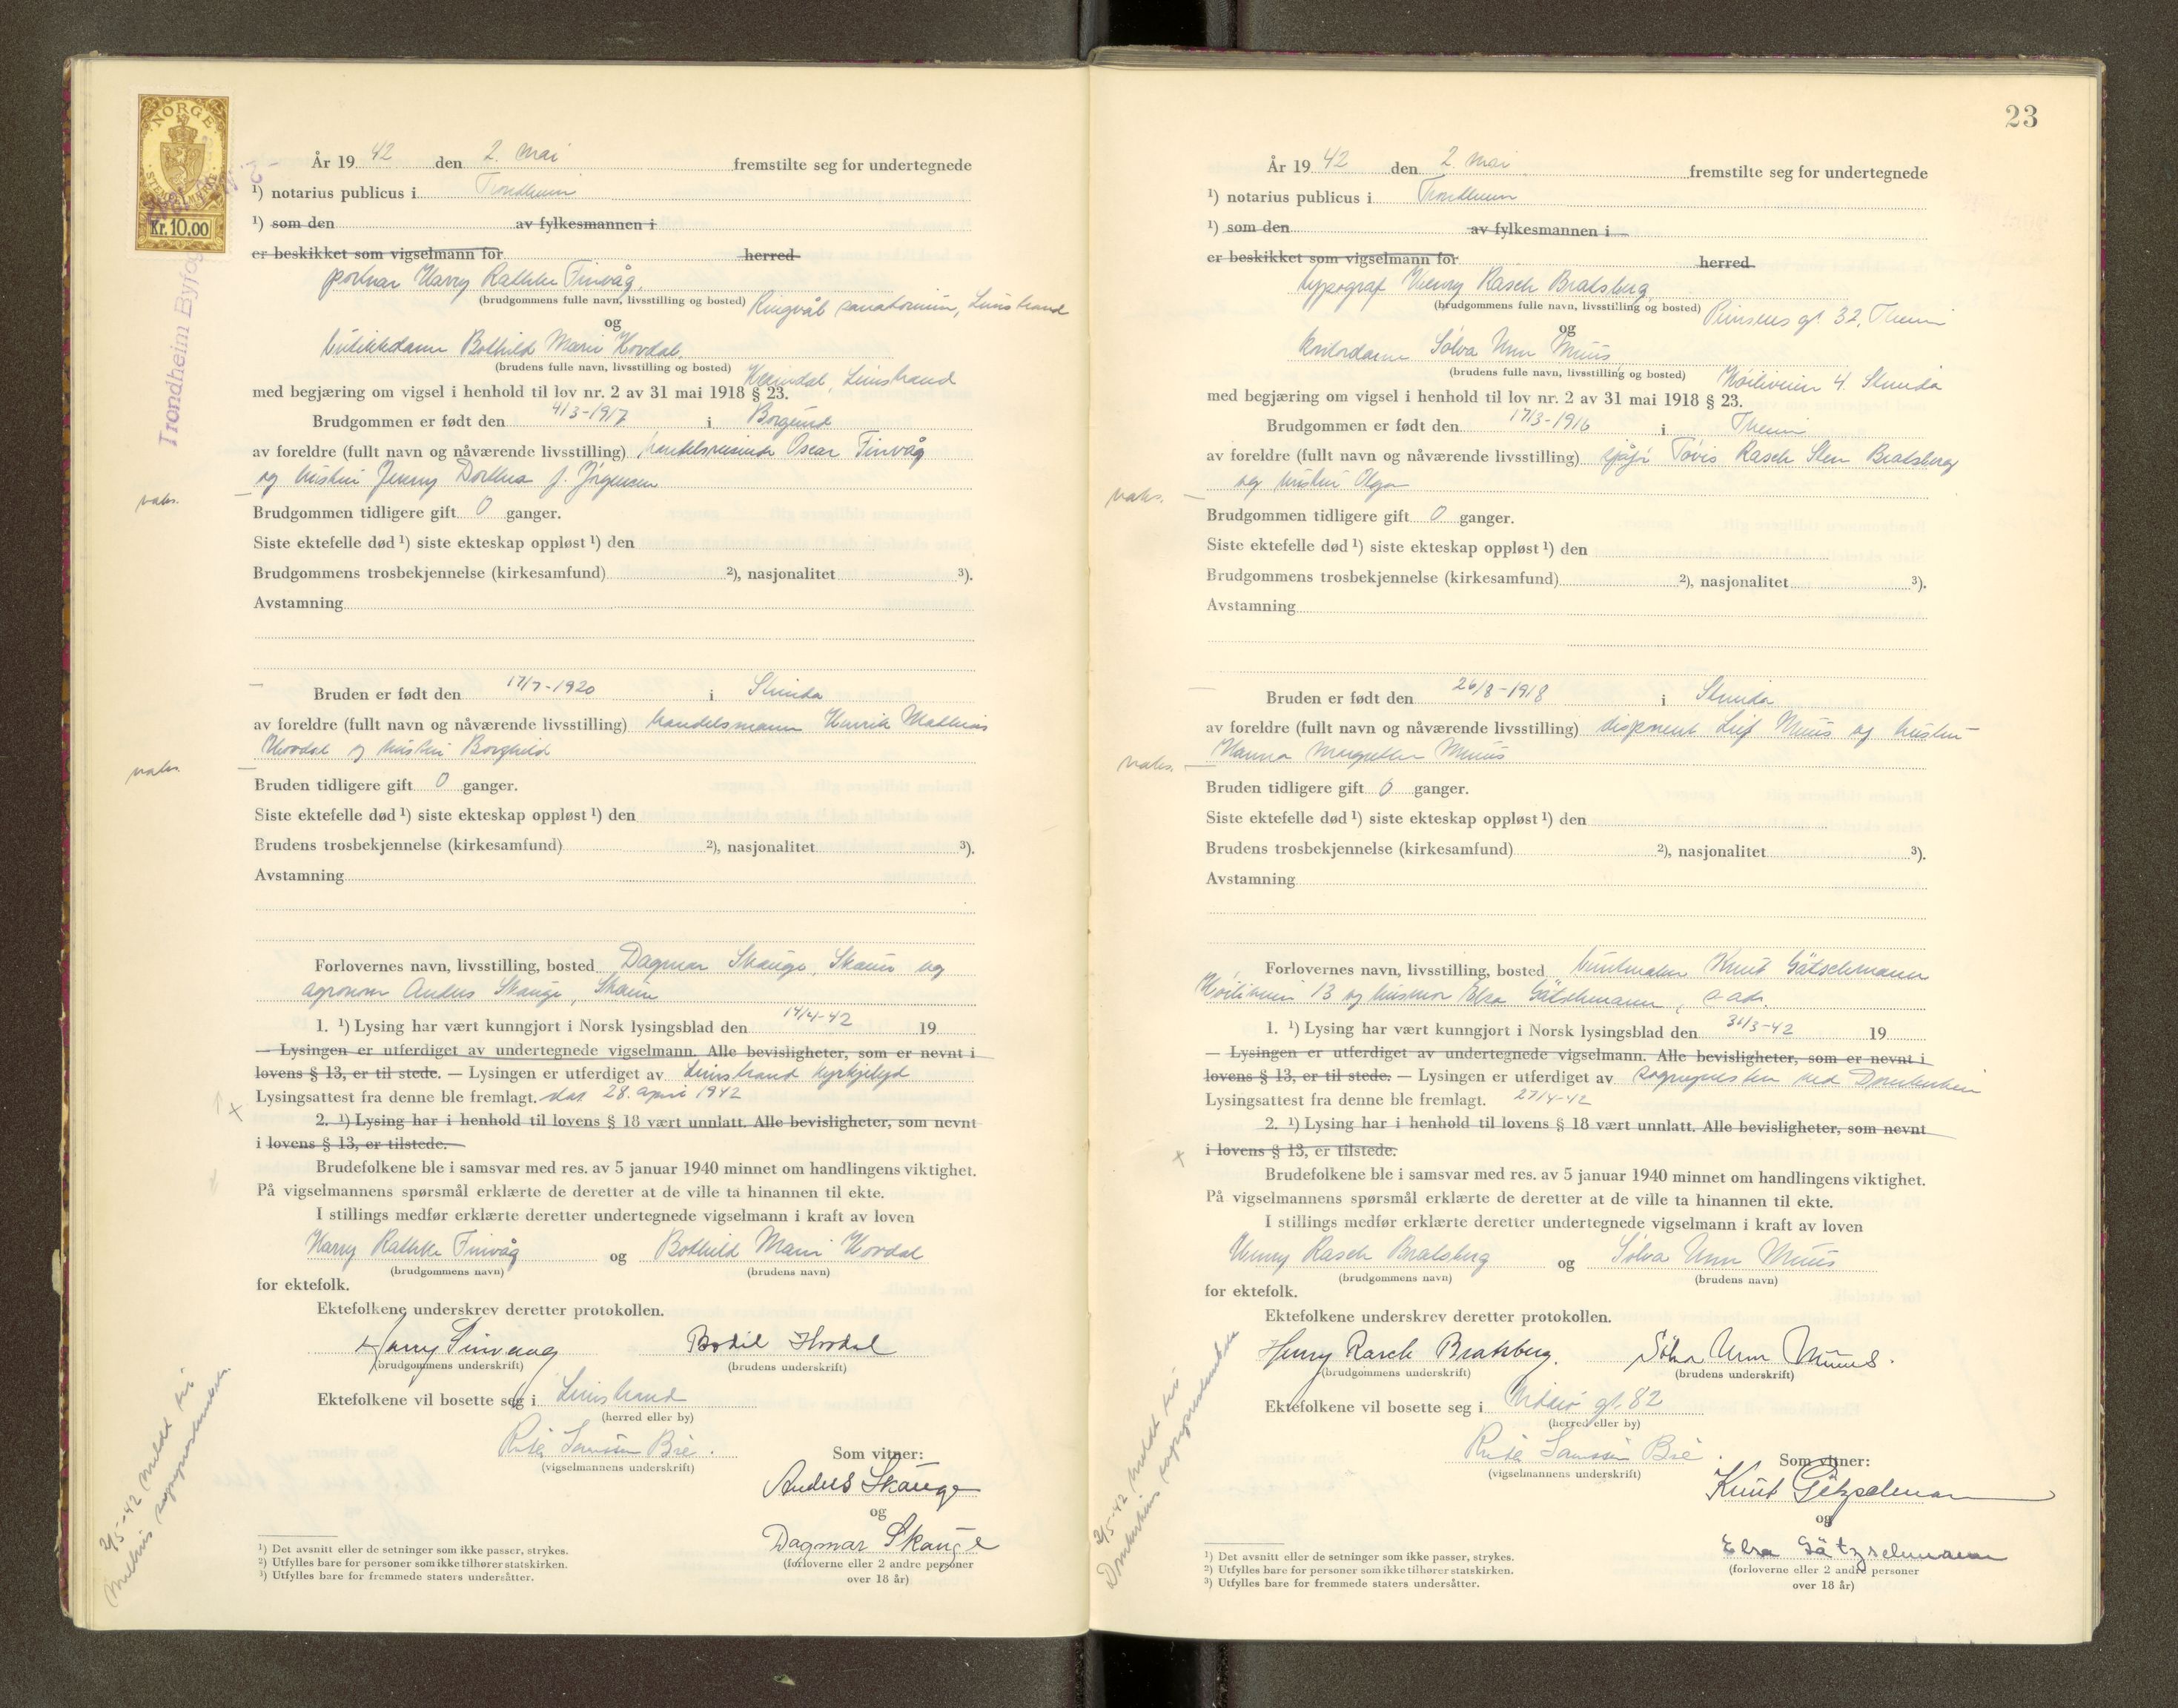 NORGE
Kr. 10.00
Trondheim Byfog
År 19 42 den 2. mai fremstilte seg for undertegnede
¹) notarius publicus i Trondheim
¹) som den av fylkesmannen i
er beskikket som vigselmann for herred
portner Harry Rathke Finvåg,
(brudgommens fulle navn, livsstilling og bosted) Ringvål sanatorium, Leinstrand
og
butikkdame Bothild Marie Hovdal,
(brudens fulle navn, livsstilling og bosted) Heimdal, Leinstrand
med begjæring om vigsel i henhold til lov nr. 2 av 31 mai 1918 § 23.
Brudgommen er født den 4/3-1917 i Borgund
av foreldre (fullt navn og nåværende livsstilling) handelsreisende Oscar Finvåg
og hustru Jenny Dorthea f. Jörgensen
vaks.
Brudgommen tidligere gift 0 ganger.
Siste ektefelle død ¹) siste ekteskap oppløst ¹) den
Brudgommens trosbekjennelse (kirkesamfund) ²), nasjonalitet ³).
Avstamning
Bruden er født den 17/7-1920 i Strinda
av foreldre (fullt navn og nåværende livsstilling) handelsmann Henrik Mathias
Hovdal og hustru Borghild
vaks.
Bruden tidligere gift 0 ganger.
Siste ektefelle død ¹) siste ekteskap oppløst ¹) den
Brudens trosbekjennelse (kirkesamfund) ²), nasjonalitet ³).
Avstamning
Forlovernes navn, livsstilling, bosted Dagmar Skauge, Skaun og
agronom Anders Skauge, Skaun
1. ¹) Lysing har vært kunngjort i Norsk lysingsblad den 14/4-42 19
— Lysingen er utferdiget av undertegnede vigselmann. Alle bevisligheter, som er nevnt i
lovens § 13, er til stede. — Lysingen er utferdiget av Leinstrand kyrkjelyd
Lysingsattest fra denne ble fremlagt. dat 28. april 1942
2. ¹) Lysing har i henhold til lovens § 18 vært unnlatt. Alle bevisligheter, som nevnt
i lovens § 13, er tilstede.
Brudefolkene ble i samsvar med res. av 5 januar 1940 minnet om handlingens viktighet.
På vigselmannens spørsmål erklærte de deretter at de ville ta hinannen til ekte.
I stillings medfør erklærte deretter undertegnede vigselmann i kraft av loven
Harry Rathke Finvåg og Bothild Marie Hovdal
(brudgommens navn) (brudens navn)
for ektefolk.
Ektefolkene underskrev deretter protokollen.
Harry Finvaag Bodil Hovdal
(brudgommens underskrift) (brudens underskrift)
Ektefolkene vil bosette seg i Leinstrand
(herred eller by)
(vigselmannens underskrift)
Som vitner:
Anders Skauge
og
Dagmar Skauge
(forloverne eller 2 andre personer
over 18 år)
2/5-42 meldt til
Melhus sogneprestembede.
¹) Det avsnitt eller de setninger som ikke passer, strykes.
²) Utfylles bare for personer som ikke tilhører statskirken.
³) Utfylles bare for fremmede staters undersåtter.
23
År 19 42 den 2. mai fremstilte seg for undertegnede
¹) notarius publicus i Trondheim
¹) som den av fylkesmannen i
er beskikket som vigselmann for herred
typograf Henry Rasch Bratsberg
(brudgommens fulle navn, livsstilling og bosted) Prinsens gt. 32, Theim
og
kontordame Sølva Unn Muus
(brudens fulle navn, livsstilling og bosted) 4. Strinda
med begjæring om vigsel i henhold til lov nr. 2 av 31 mai 1918 § 23.
Brudgommen er født den 17/3-1916 i Theim
av foreldre (fullt navn og nåværende livsstilling) sjåfør Rasch Sten Bratsberg
og hustru Olga
vaks.
Brudgommen tidligere gift 0 ganger.
Siste ektefelle død ¹) siste ekteskap oppløst ¹) den
Brudgommens trosbekjennelse (kirkesamfund) ²), nasjonalitet ³).
Avstamning
Bruden er født den 26/8-1918 i Strinda
av foreldre (fullt navn og nåværende livsstilling) disponent Leif Muus og hustru
Hanna Margrethe Muus
vaks.
Bruden tidligere gift 0 ganger.
Siste ektefelle død ¹) siste ekteskap oppløst ¹) den
Brudens trosbekjennelse (kirkesamfund) ²), nasjonalitet ³).
Avstamning
Forlovernes navn, livsstilling, bosted Knut Gätschmann
13 og husmor Elsa Gätschmann, s. adr.
1. ¹) Lysing har vært kunngjort i Norsk lysingsblad den 31/3-42 19
— Lysingen er utferdiget av undertegnede vigselmann. Alle bevisligheter, som er nevnt i
lovens § 13, er til stede. — Lysingen er utferdiget av sognepresten ved Domkirken
Lysingsattest fra denne ble fremlagt. 27/4-42
2. ¹) Lysing har i henhold til lovens § 18 vært unnlatt. Alle bevisligheter, som nevnt
i lovens § 13, er tilstede.
Brudefolkene ble i samsvar med res. av 5 januar 1940 minnet om handlingens viktighet.
På vigselmannens spørsmål erklærte de deretter at de ville ta hinannen til ekte.
I stillings medfør erklærte deretter undertegnede vigselmann i kraft av loven
Henry Rasch Bratsberg og Sølva Unn Muus
(brudgommens navn) (brudens navn)
for ektefolk.
Ektefolkene underskrev deretter protokollen.
Henry Rasch Bratsberg. Sölva Unn Muus.
(brudgommens underskrift) (brudens underskrift)
Ektefolkene vil bosette seg i gt. 82
(herred eller by)
(vigselmannens underskrift)
Som vitner:
Knut Gätzschmann
og
Elsa Gätzschmann
(forloverne eller 2 andre personer
over 18 år)
2/5-42 meldt til
Domkirkens sogneprestembede
¹) Det avsnitt eller de setninger som ikke passer, strykes.
²) Utfylles bare for personer som ikke tilhører statskirken.
³) Utfylles bare for fremmede staters undersåtter.